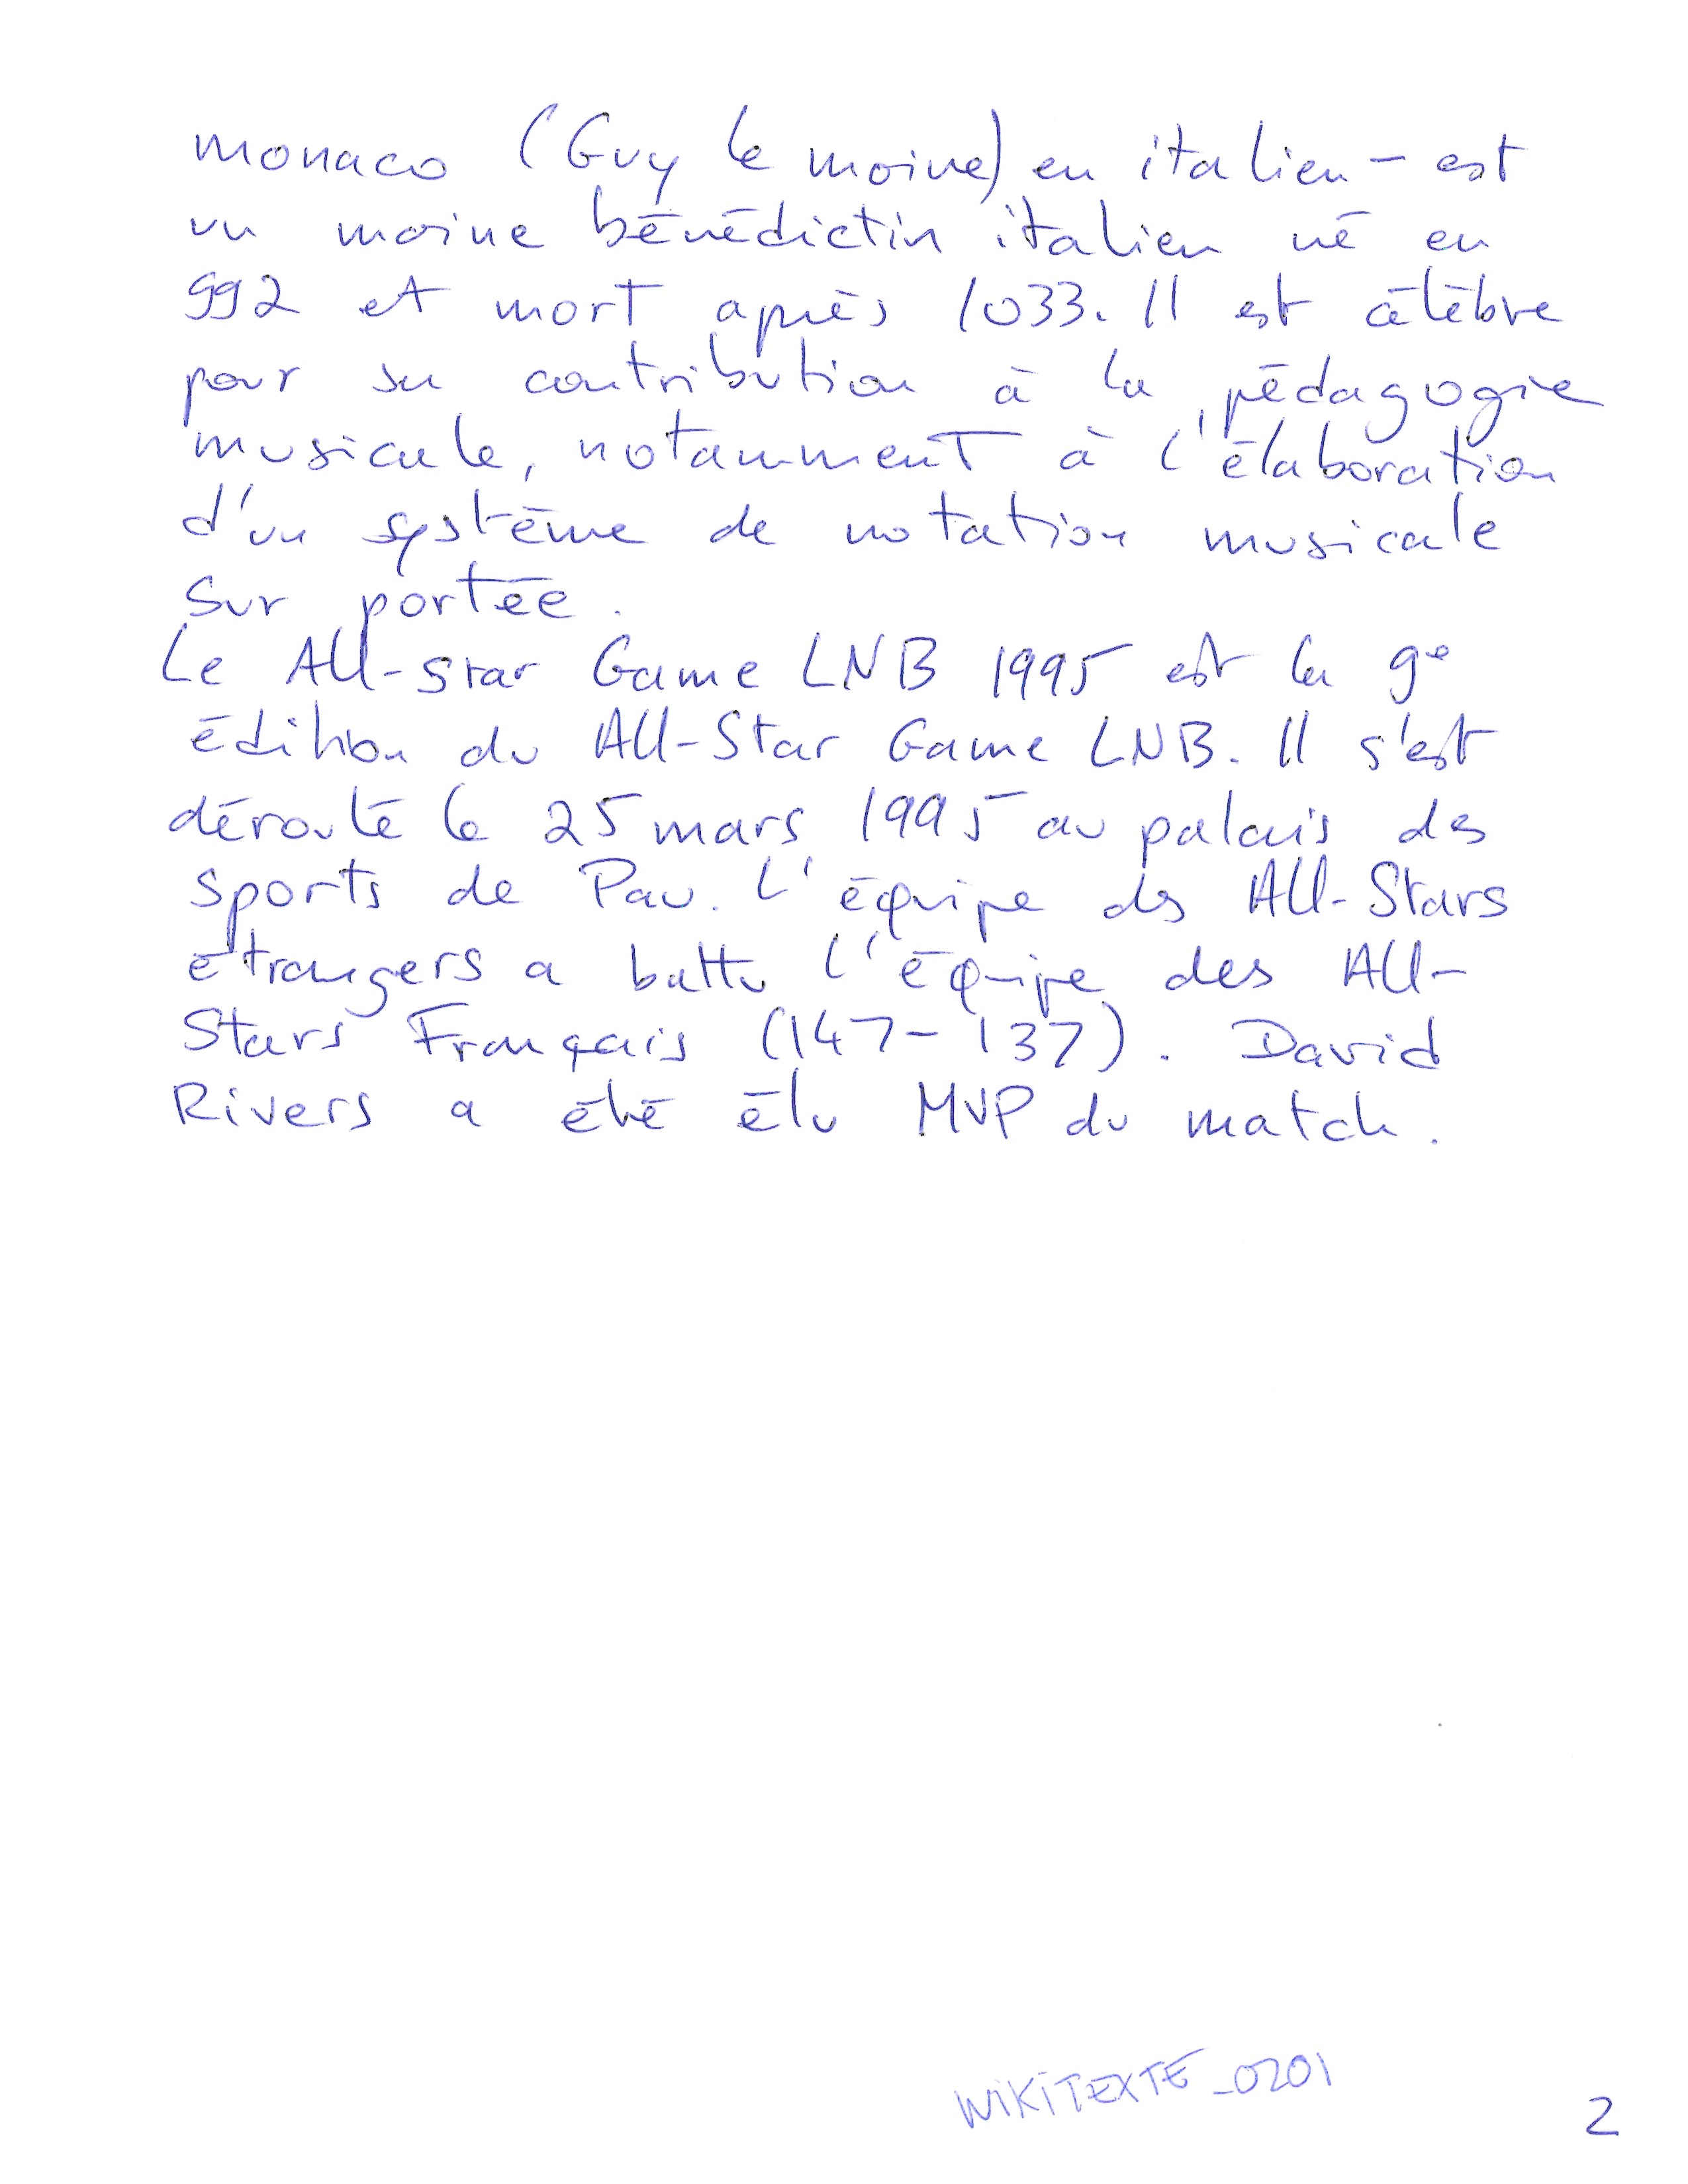 monaco (Guy le moine) en italien - est
un moine bénédictin italien né en
992 et mort après 1033. Il est célèbre
pour sa contribution à la pédagogie
musicale, notamment à l'élaboration
d'un système de notation musicale
sur portée.
Le All-Star Game LNB 1995 est la 9e
édition du All-Star Game LNB. Il s'est
déroulé le 25 mars 1995 au palais des
sports de Pau. L'équipe des All-Stars
étrangers a battu l'équipe des All-
Stars Français (147-137). David
Rivers a été élu MVP du match.
WIKITEXTE_0201
2